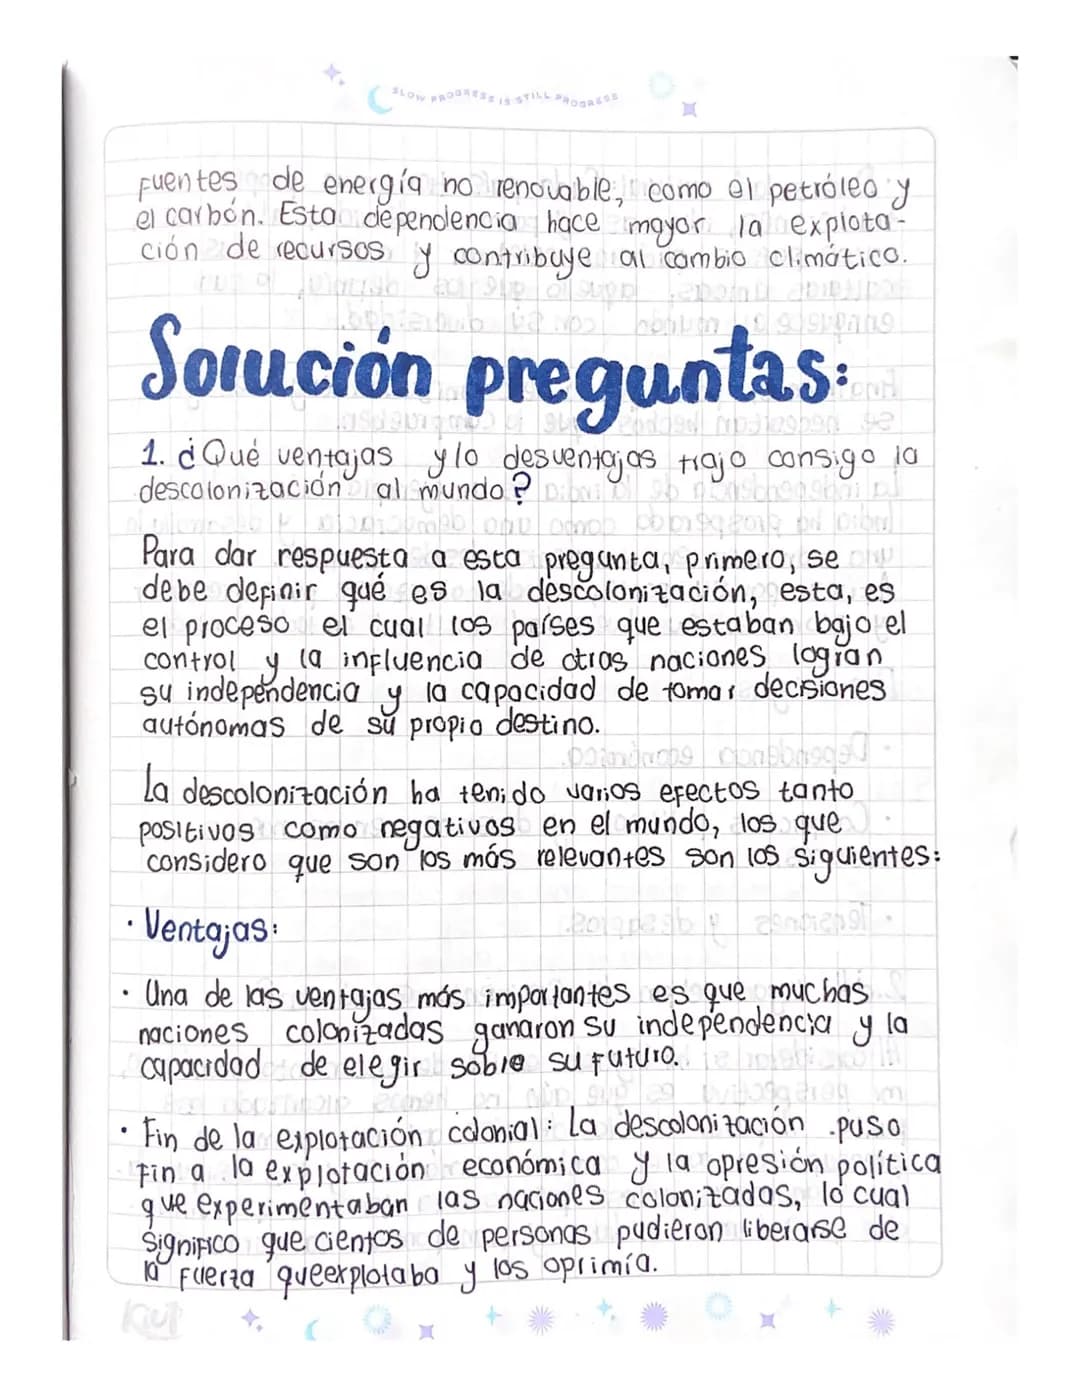 SLOW PROGRESS IS STILL PROGRESS
Fuentes de energía no renovable, como el petróleo y
el carbón. Esta dependencia hace mayor la explota-
ción de recursos y contribuye al cambio climático.
Solución preguntas:
1. ¿Qué ventajas y/o desventajas trajo consigo la
descolonización al mundo?
Para dar respuesta a esta pregunta, primero, se
debe definir qué es la descolonización, esta, es
el proceso el cual los países que estaban bajo el
control y la influencia de otras naciones logran
su independencia y la capacidad de tomar decisiones
autónomas de su propio destino.
La descolonización ha tenido varios efectos tanto
positivos como negativos en el mundo, los que
considero que son los más relevantes son los siguientes:
· Ventajas:
· Una de las ventajas más importantes es que muchas
naciones colonizadas ganaron su independencia y la
capacidad de elegir sobre su futuro.
· Fin de la explotación colonial: La descolonización puso
fin a la explotación económica y la opresión política
que experimentaban las naciones colonizadas, lo cual
significo que cientos de personas pudieron liberarse de
la fuerza que explotaba y los oprimía.